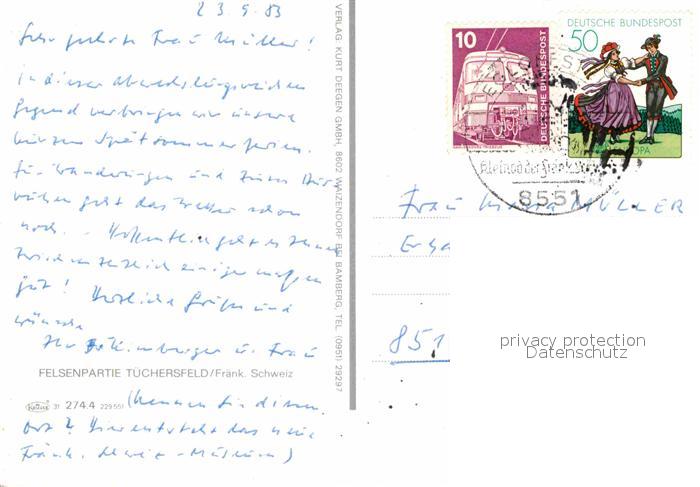 23.9.83
Sehr geehrte Frau Müller!
In dieser abwechslungsreichen
Gegend verbringen wir unsere
kurzen Spätsommerferien.
Für Wanderungen und zum
geht das Wetter schon
noch. Hoffentlich geht es Ihnen
einigermaßen
gut! Herzliche Grüße und
Wünsche
Ihr u. Frau
FELSENPARTIE TÜCHERSFELD/Fränk. Schweiz
31 274.4 229551
(Kennen Sie diesen
Ort? Hier entsteht das neue
Fränk. Schweiz-Museum)
VERLAG KURT DEEGEN GMBH, 8602 WAIZENDORF BEI BAMBERG, TEL. (0951) 29297
10
DEUTSCHE BUNDESPOST
DEUTSCHE BUNDESPOST
50
8551
Frau Maria MÜLLER
851
privacy protection
Datenschutz